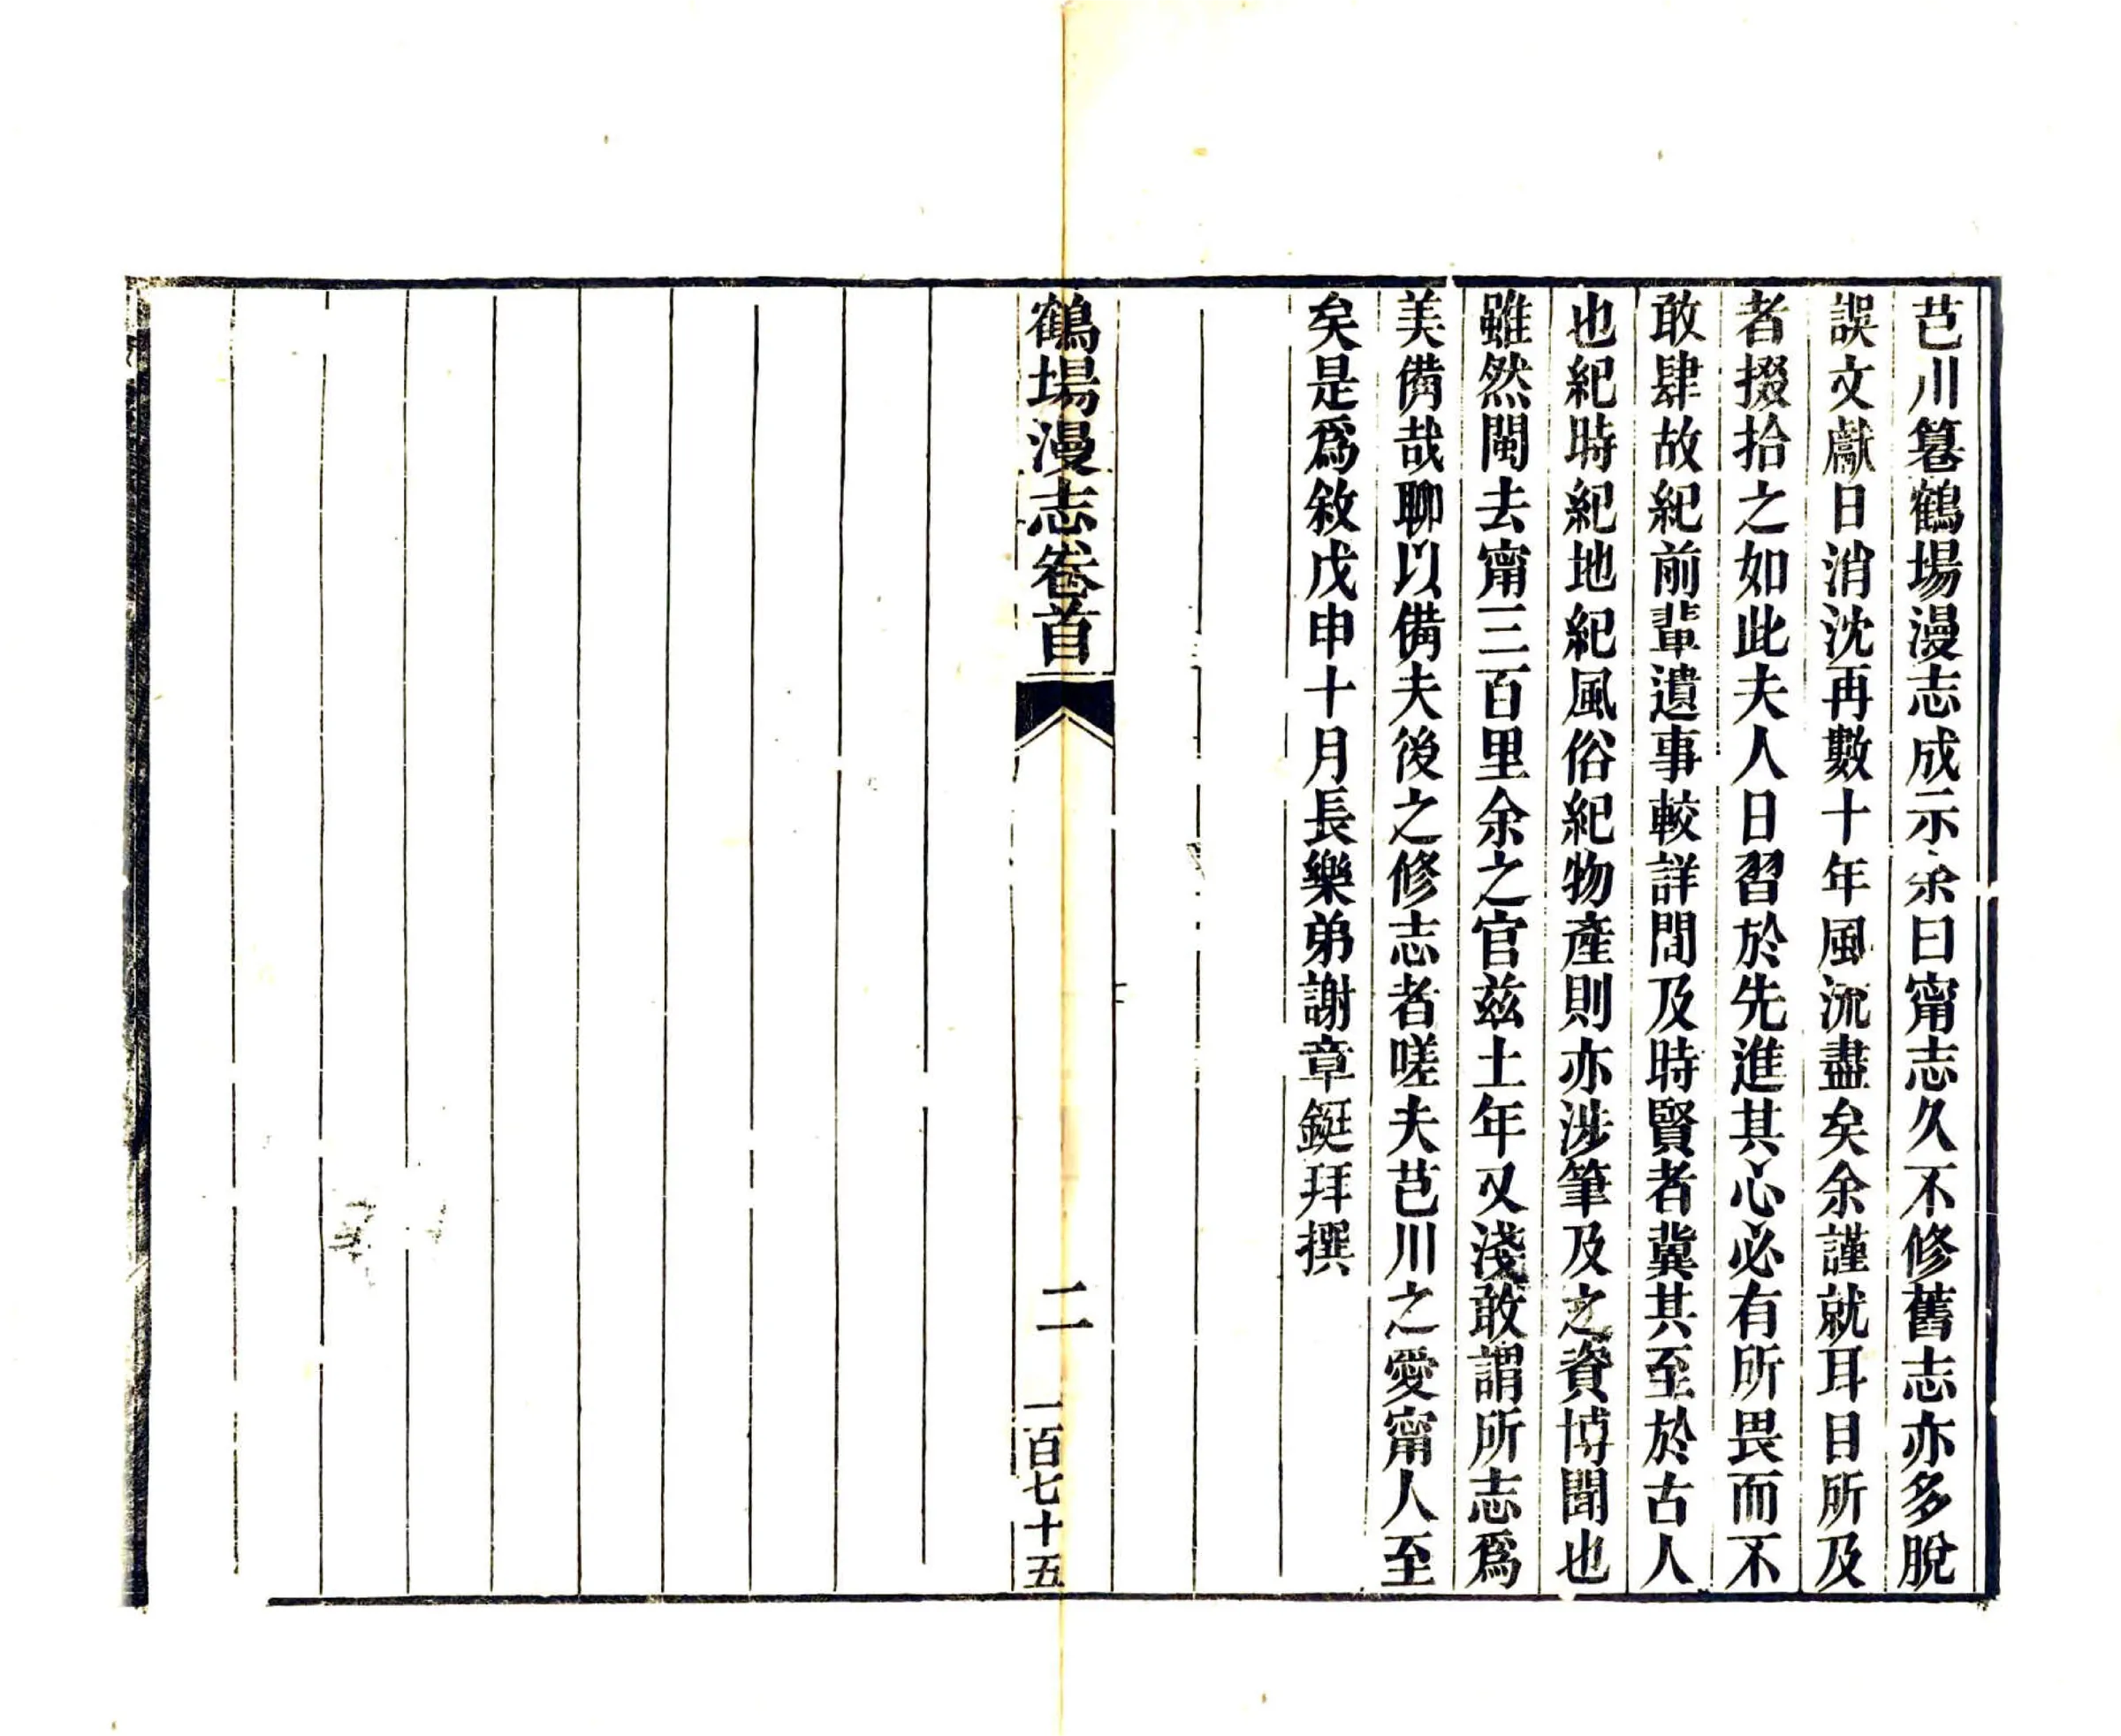 芑川篹鶴場漫志成示余曰甯志久不修舊志亦多脫
誤文獻日消沈再數十年風流盡矣余謹就耳目所及
者掇拾之如此夫人日習於先進其心必有所畏而不
敢肆故紀前輩遺事較詳間及時賢者冀其至於古人
也紀時紀地紀風俗紀物產則亦涉筆及之資博聞也
雖然閩去甯三百里余之官兹土年又淺敢謂所志爲
美備哉聊以備夫後之修志者嗟夫芑川之愛甯人至
矣是爲敘戊申十月長樂弟謝章鋌拜撰
鶴場漫志卷首
二
一百七十五